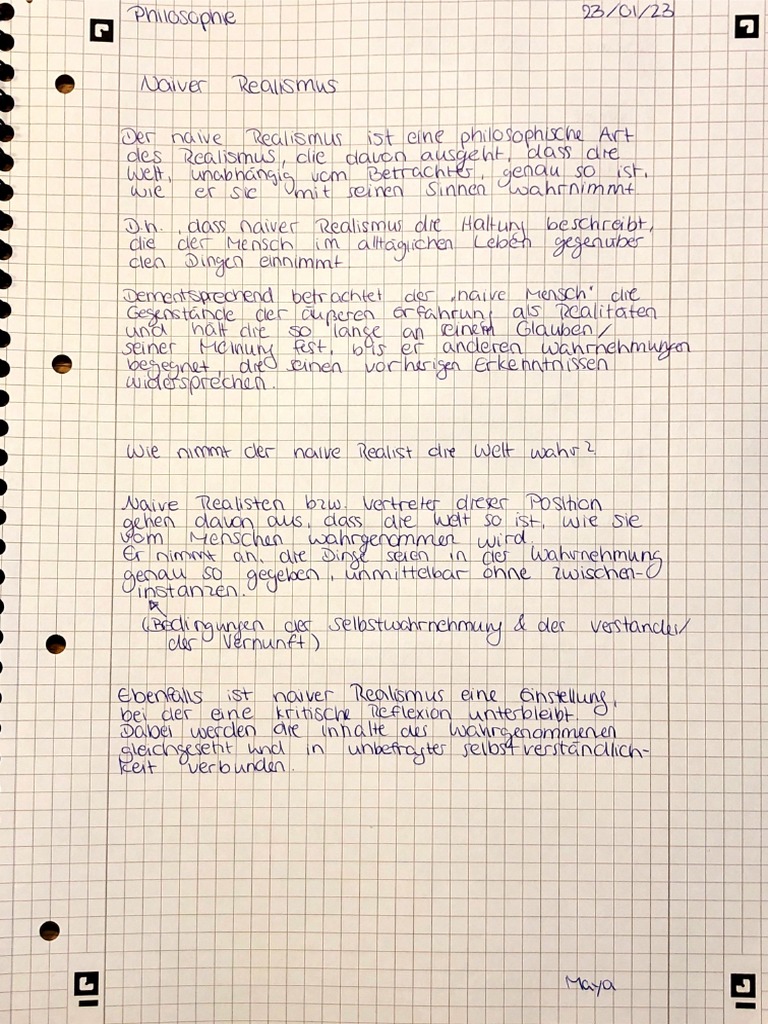 Philosophie
23/01/23
Naiver Realismus
Der naive Realismus ist eine philosophische Art
des Realismus, die davon ausgeht, dass die
Welt, unabhängig vom Betrachter, genau so ist,
wie er sie mit seinen Sinnen wahrnimmt
D.h., dass naiver Realismus die Haltung beschreibt,
die der Mensch im alltäglichen Leben gegenüber
den Dingen einnimmt
Dementsprechend betrachtet der ,naive Mensch' die
Gegenstände der äußeren Erfahrung als Realitäten
und hält die so lange an seinem Glauben/
seiner Meinung fest, bis er anderen Wahrnehmungen
begegnet, die seinen vorherigen Erkenntnissen
widersprechen.
Wie nimmt der naive Realist die Welt wahr?
Naive Realisten bzw. Vertreter dieser Position
gehen davon aus, dass die Welt so ist, wie sie
vom Menschen wahrgenommen wird.
Er nimmt an, die Dinge seien in der Wahrnehmung
genau so gegeben, unmittelbar ohne zwischen-
instanzen.
(Bedingungen der selbstwahrnehmung & des verstandes/
der Vernunft)
Ebenfalls ist naiver Realismus eine Einstellung,
bei der eine kritische Reflexion unterbleibt.
Dabei werden die Inhalte des Wahrgenommenen
gleichgesetzt und in unbefragter selbstverständlich-
keit verbunden.
Maya